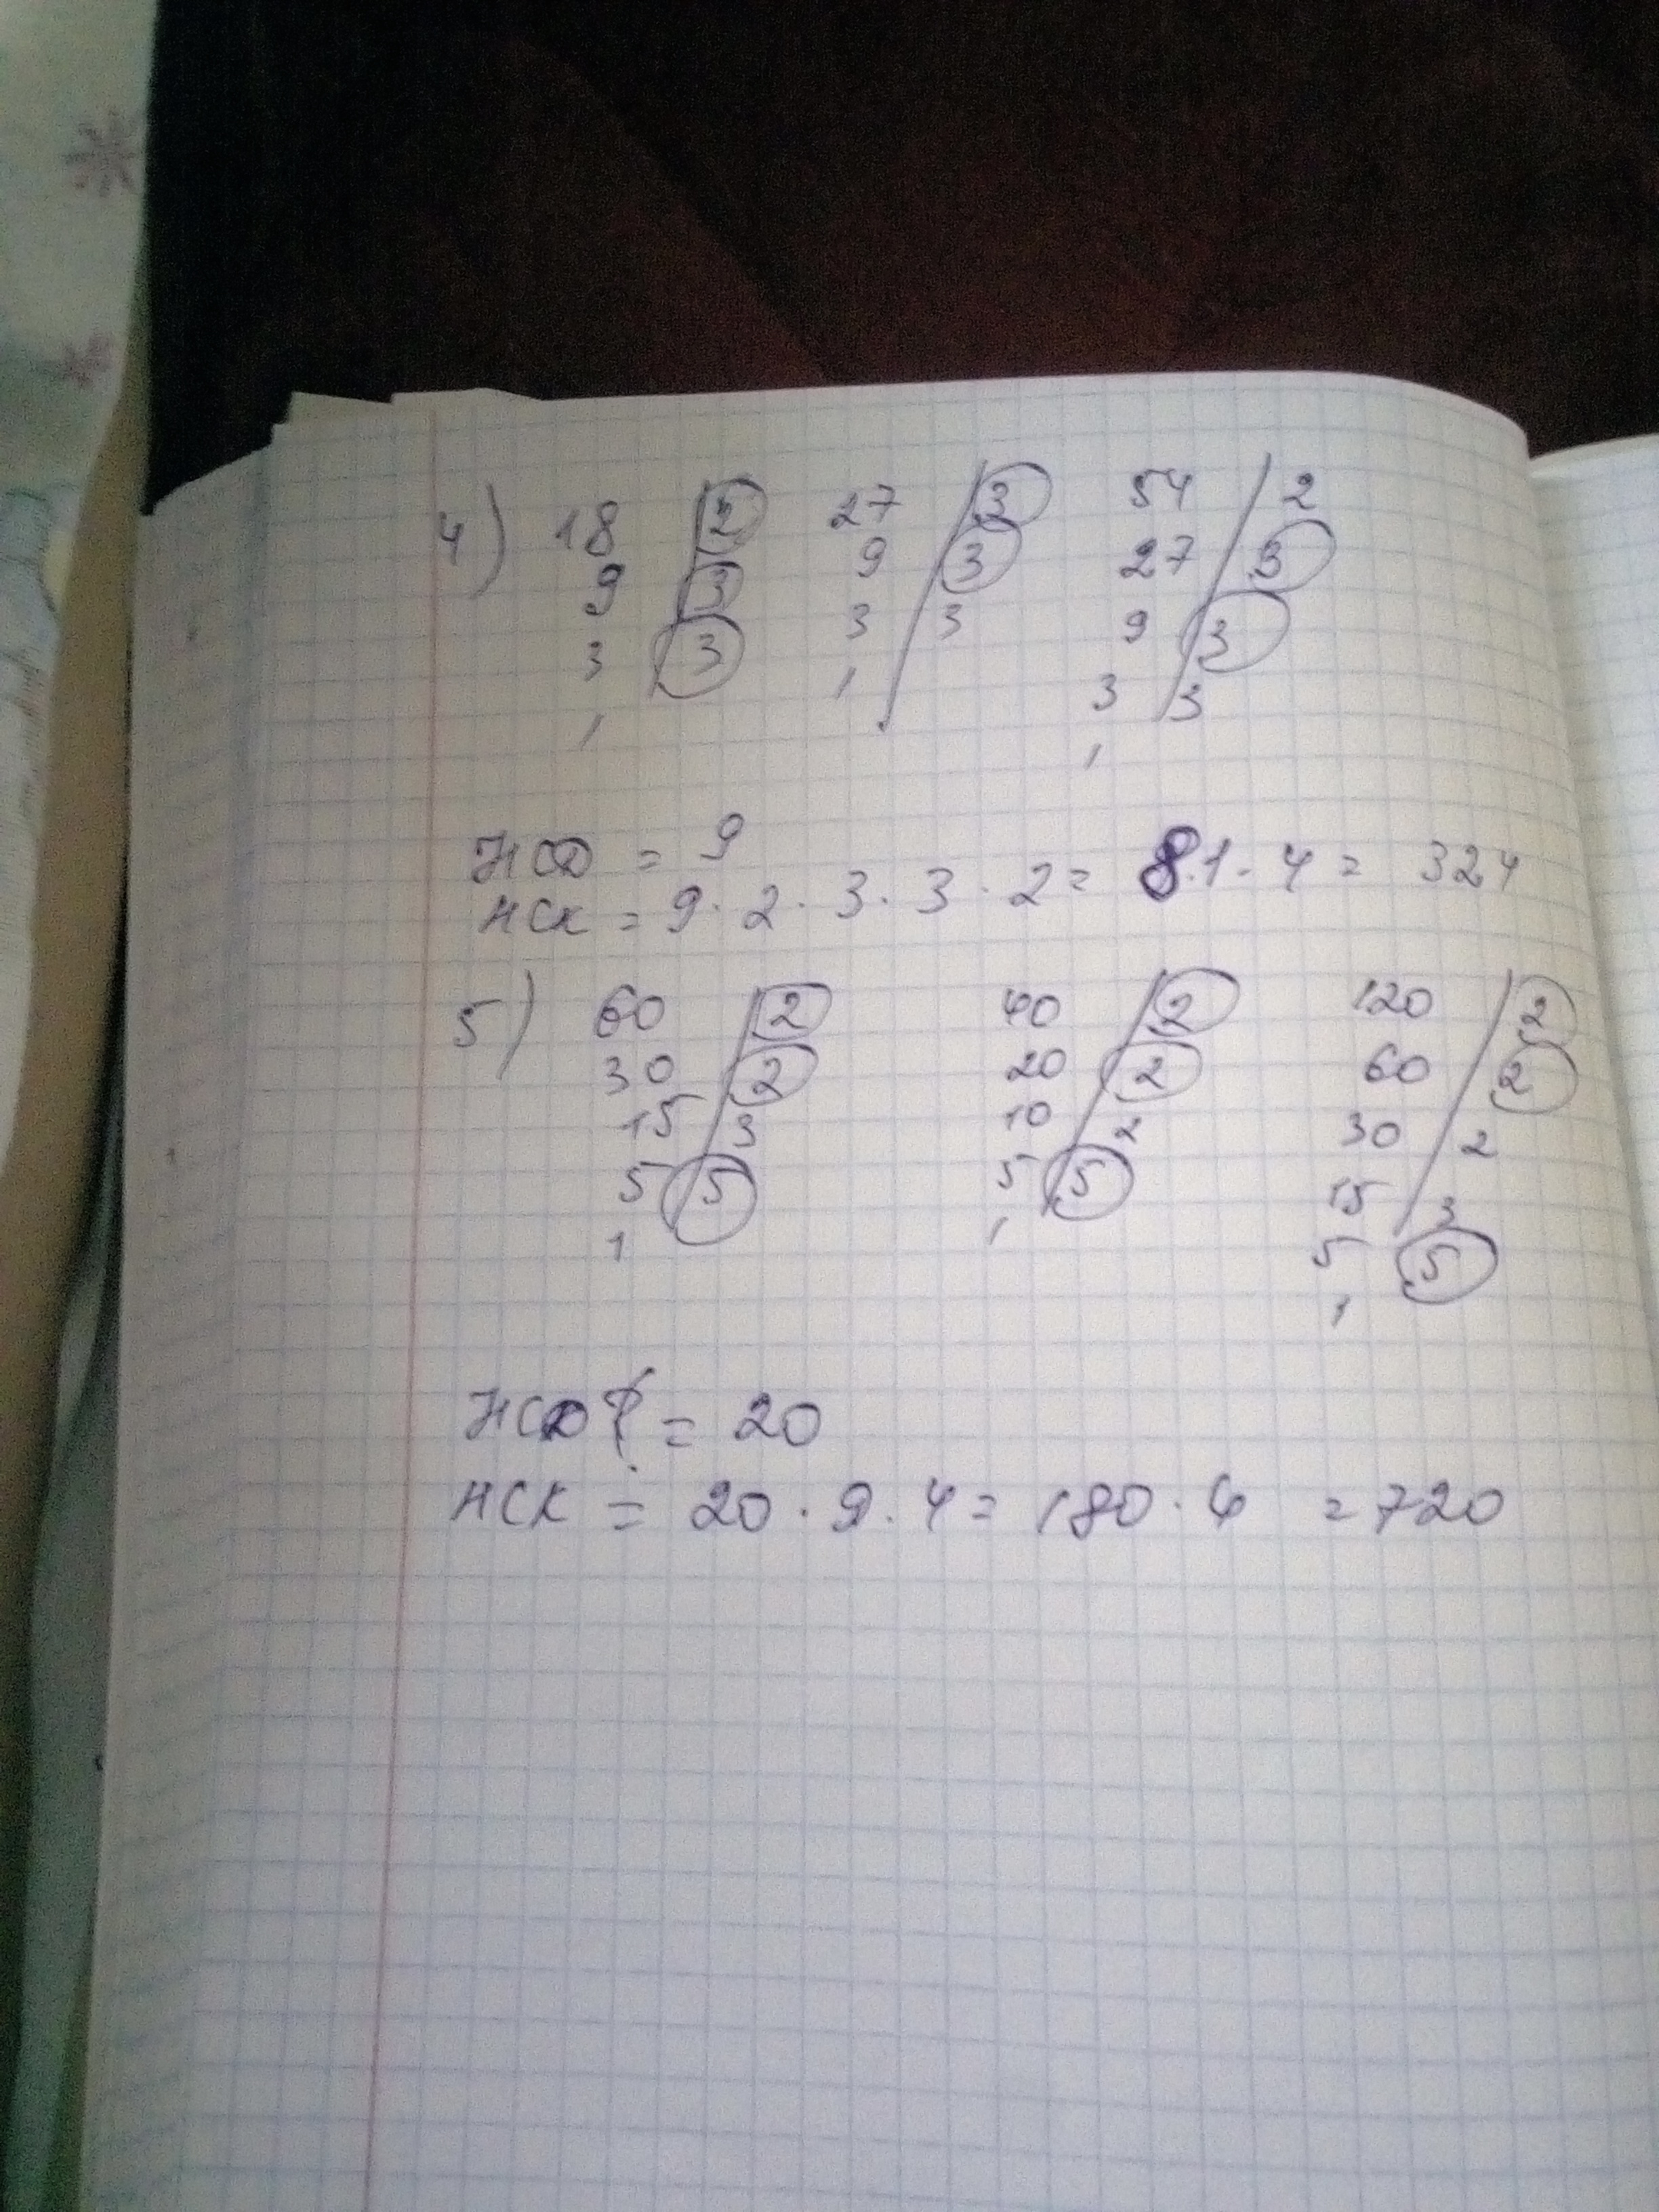 4) 18 2 27 3 54 2
9 3 9 3 27 3
3 3 3 3 9 3
1 1 3 3
1
НСД = 9
НСК = 9 · 2 · 3 · 3 · 2 = 81 · 4 = 324
5) 60 2 40 2 120 2
30 2 20 2 60 2
15 3 10 2 30 2
5 5 5 5 15 3
1 1 5 5
1
НСД = 20
НСК = 20 · 9 · 4 = 180 · 4 = 720